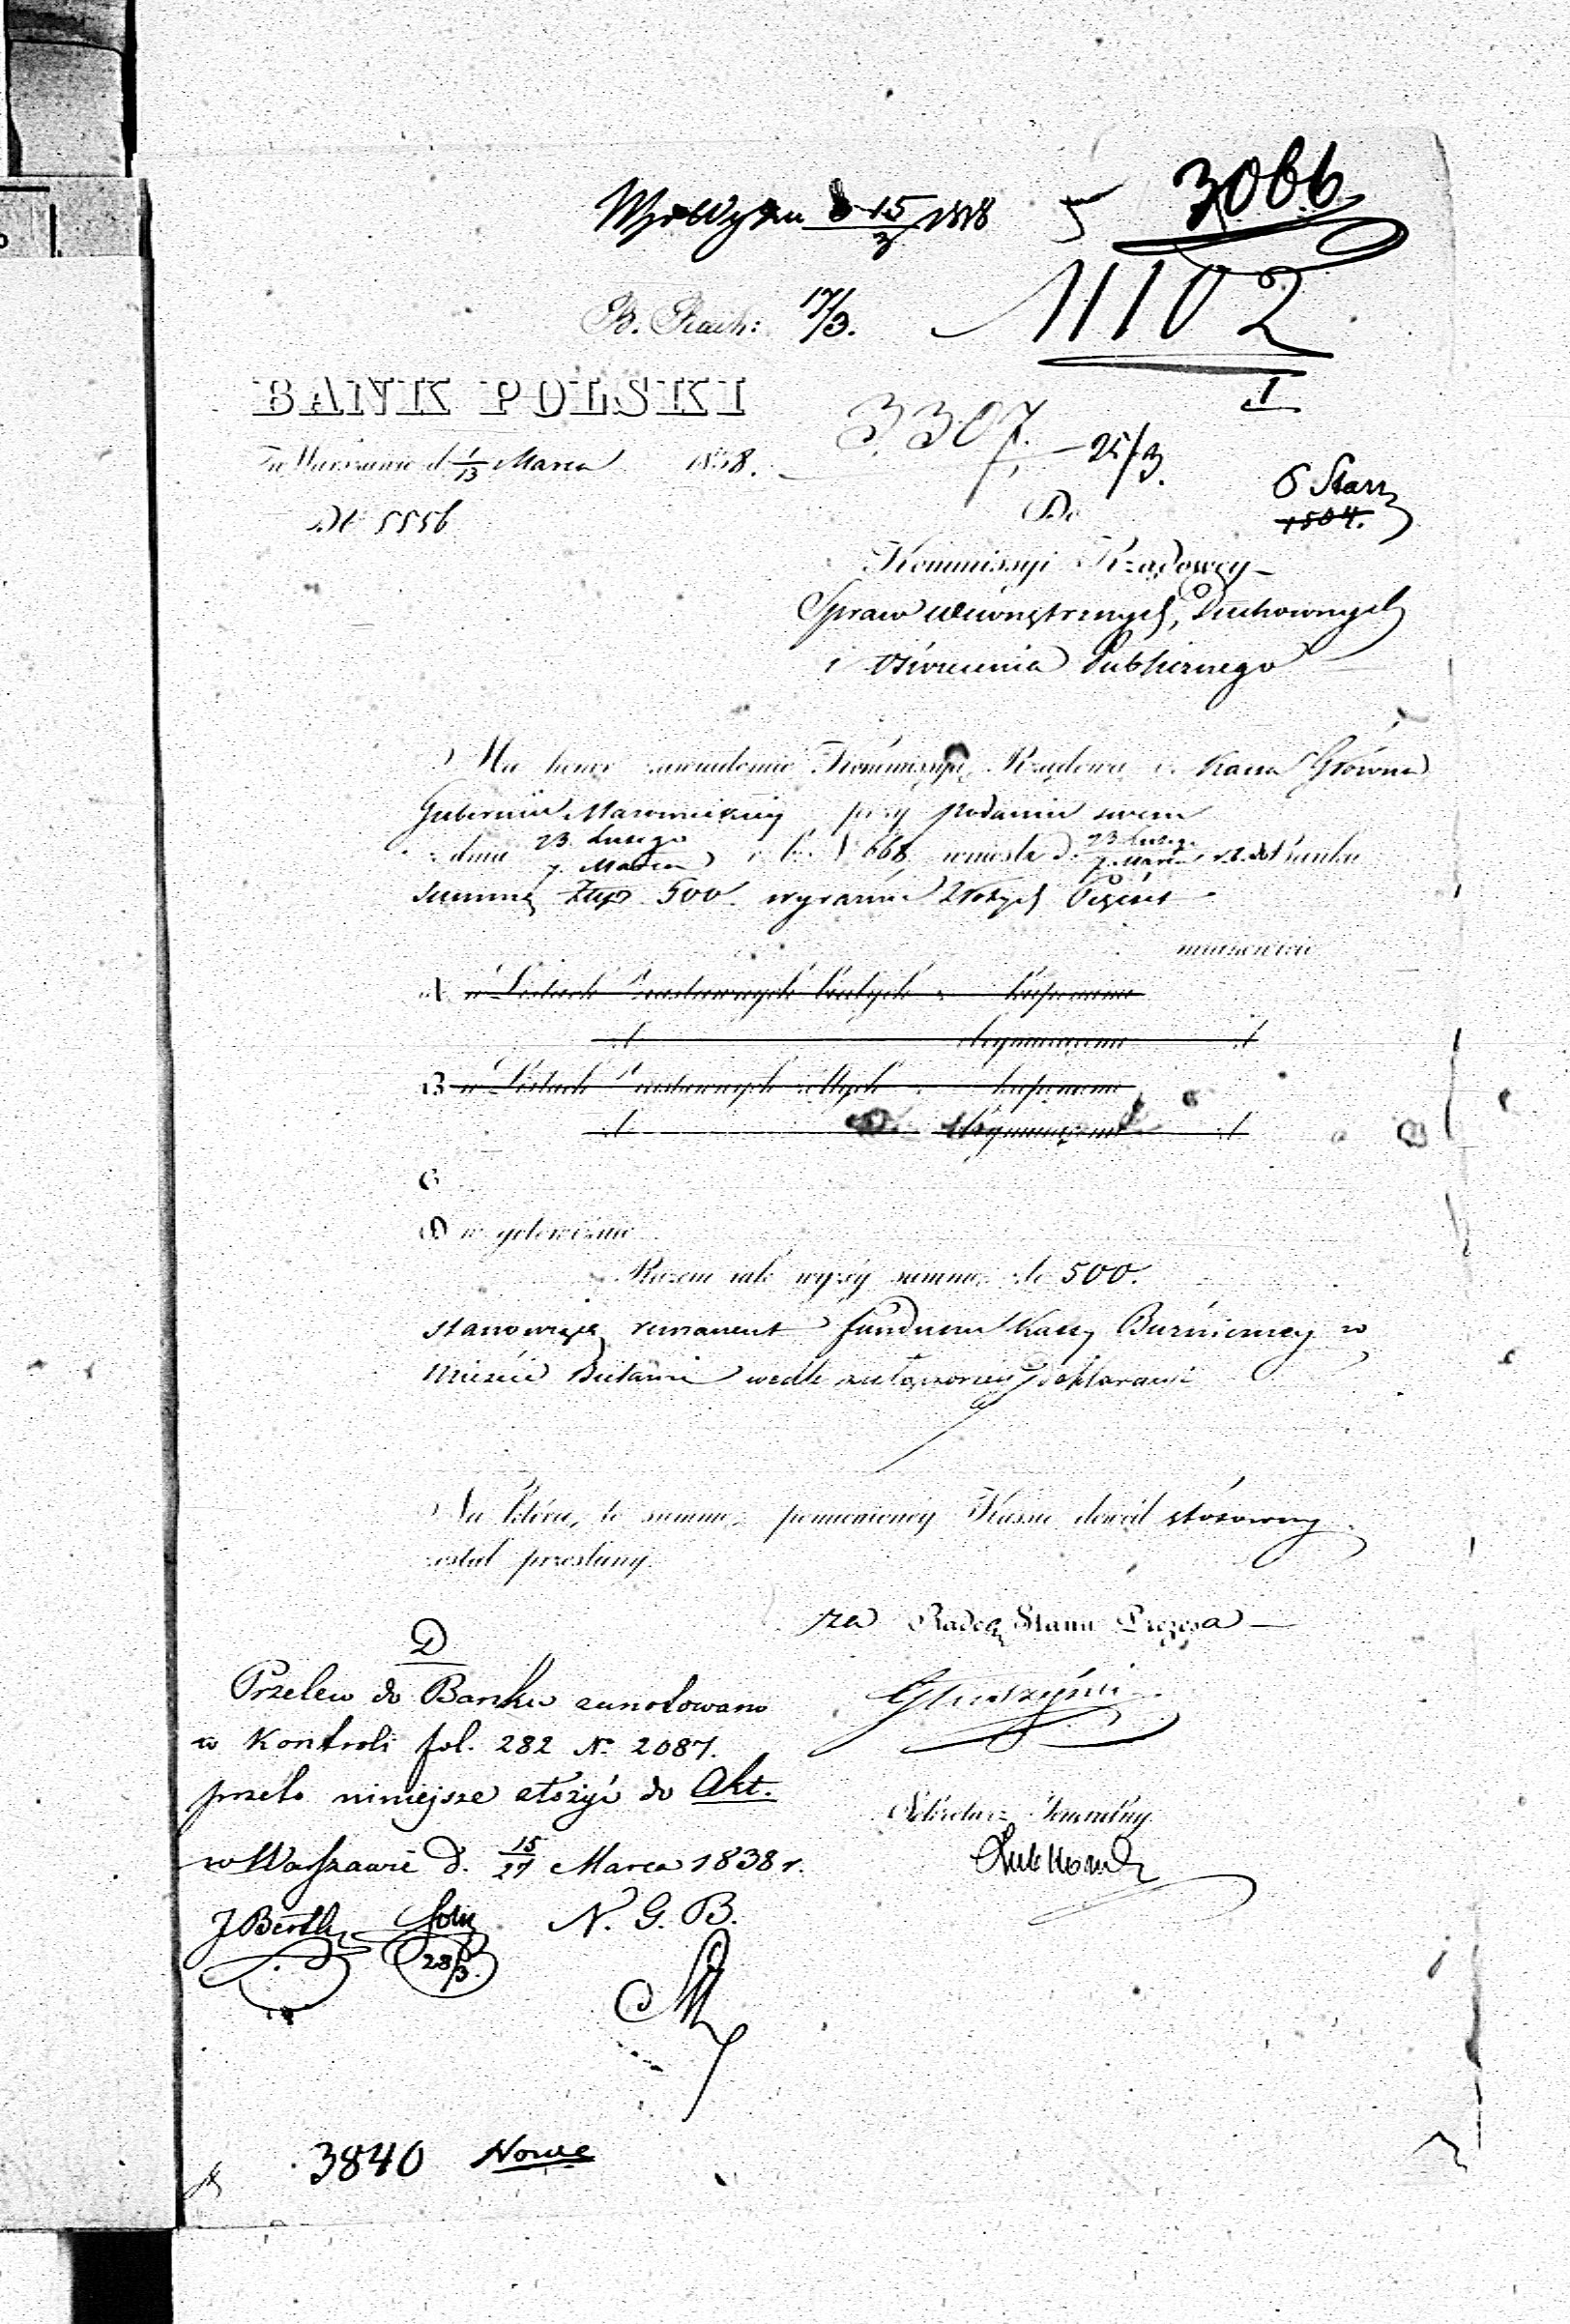 3066
15/3 1838
B. Rach: 17/3. 11102
I
BANK POLSKI
w Warszawie d. 1/13 Marca 1838.
3307. 25/3.
№ 5556
Do
1504.
Kommissyi Rządowey
Spraw Wewnętrznych, Duchownych
i Oświecenia Publicznego
Ma honor zawiadomić Kommissyę Rządową iż Kassa Główna
Gubernii Mazowieckiey przy podaniu swem
z dnia 23 Lutego / 7. Marca 668 wniosła d. 23 Lutego / 7. Marca r.b. do Banku
summę Złp 500. wyraźnie Złotych Pięćset
mianowicie
A w Listach Zastawnych białych z kuponami
./. ./.
B w Listach Zastawnych żółtych z kuponami
./. ./.
C
D w gotowiznie
Razem iak wyżéy summę złp 500.
stanowiącą remanent funduszu Kassy Bóżniczney w
Mieście wedle załączoney deklaracyi
Na którą to summę pomienionéy Kassie dowód stósowny
został przesłany.
za Radcę Stanu Prezesa
D
Przelew do Banku zanotowano
w Kontroli fol. 282 № 2087.
przeto niniejsze złożyć do Akt.
Sekretarz Jeneralny
w Warszawie d. 15/27 Marca 1838 r.
Lubkowski
N. G. B.
28/3.
3840 Nowe